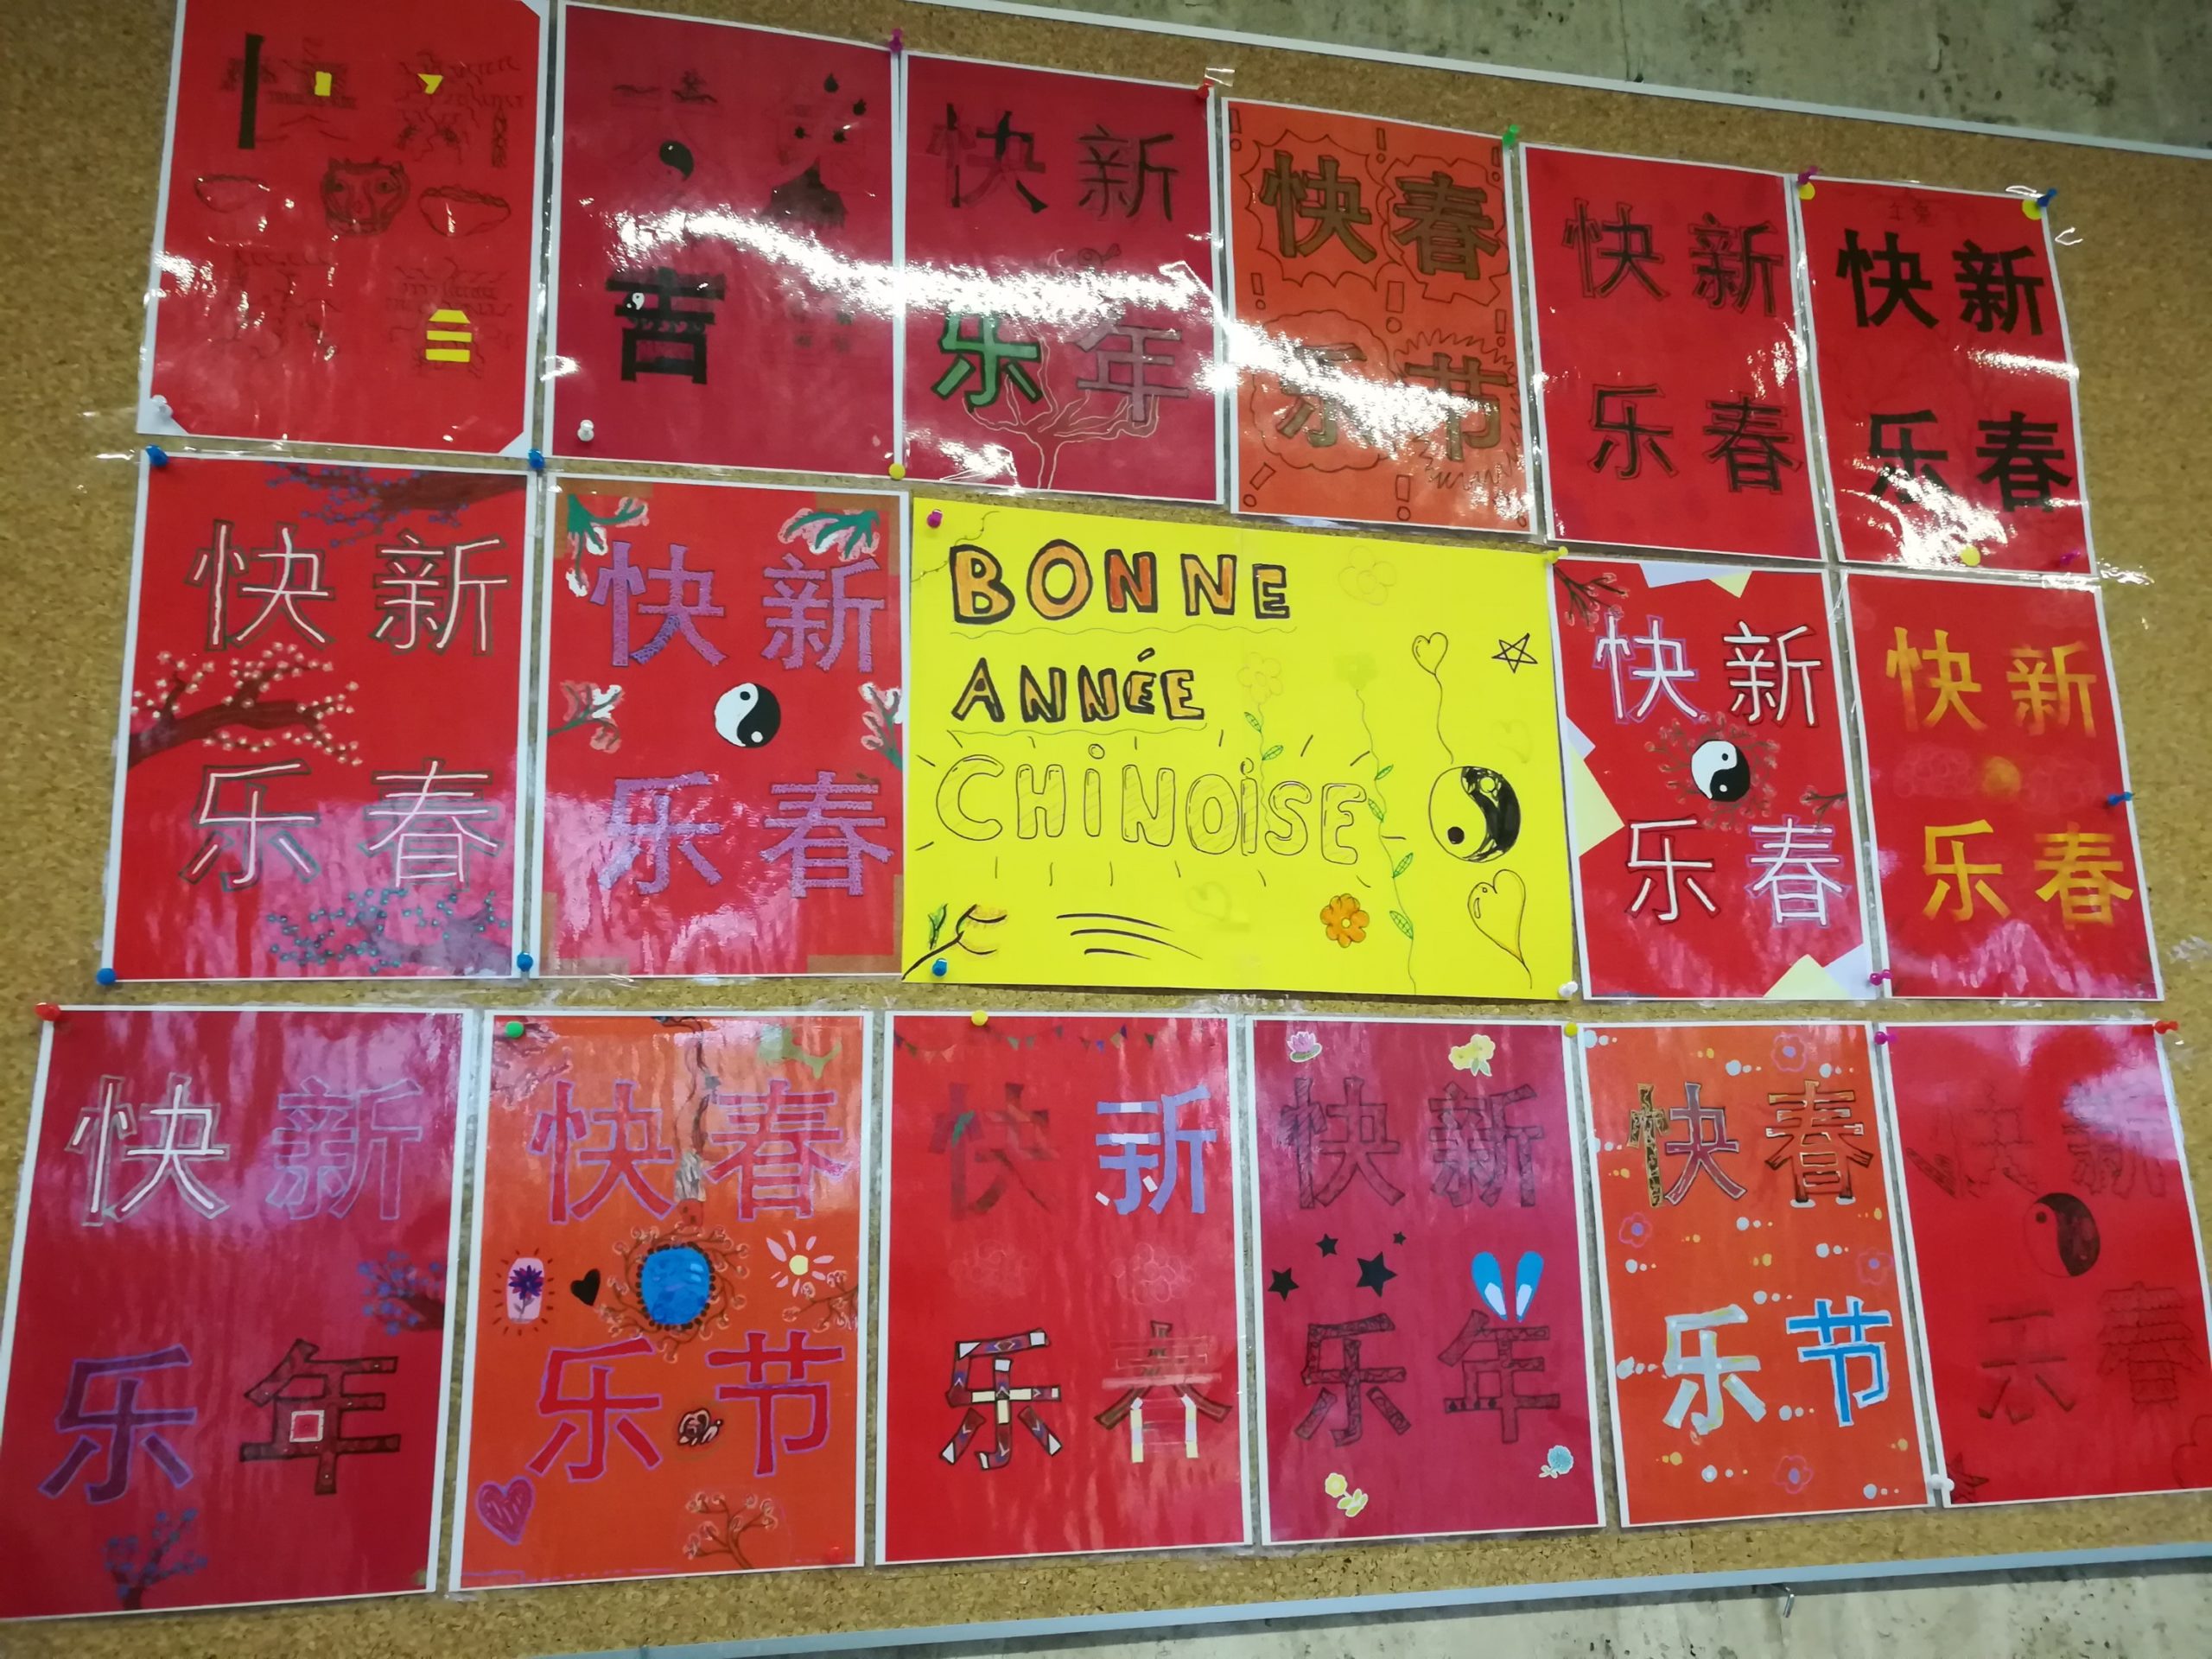 吉
快新
乐年
快春
乐节
快新
乐春
快新
乐春
快新
乐春
快新
乐春
BONNE
ANNÉE
CHINOISE
快新
乐春
快新
乐春
快新
乐年
快春
乐节
快新
乐春
快新
乐年
快春
乐节
快新
乐春